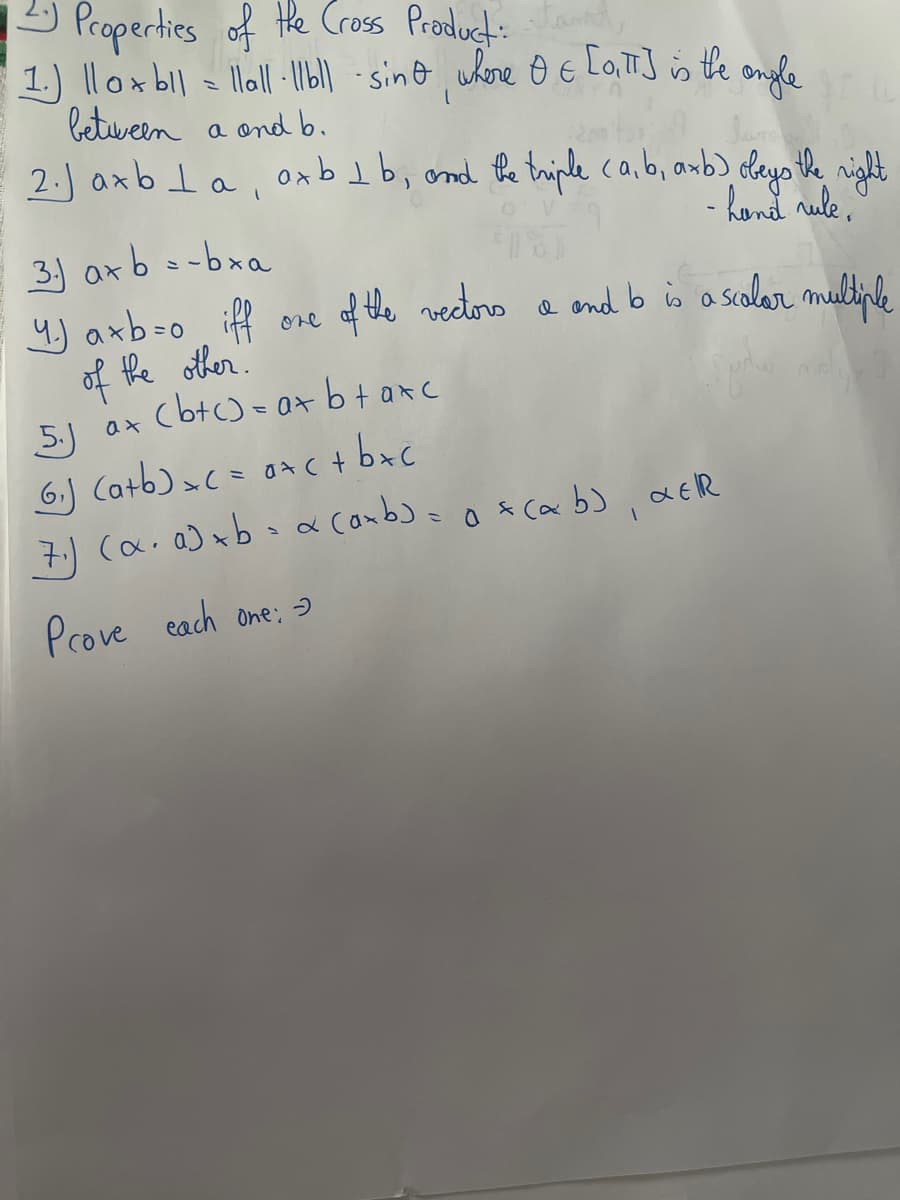 2.) Properties of the Cross Product:
1.) ||a×b|| = ||a||·||b|| · sinθ, where θ ∈ [0,π] is the angle
between a and b.
2.) a×b ⊥ a, a×b ⊥ b, and the triple (a,b, a×b) obeys the right
- hand rule.
3.) a×b = -b×a
4.) a×b=0 iff one of the vectors a and b is a scalar multiple
of the other.
5.) a× (b+c) = a×b + a×c
6.) (a+b)×c = a×c + b×c
7.) (α·a)×b = α(a×b) = a×(αb), α∈ℝ
Prove each one: ⇒